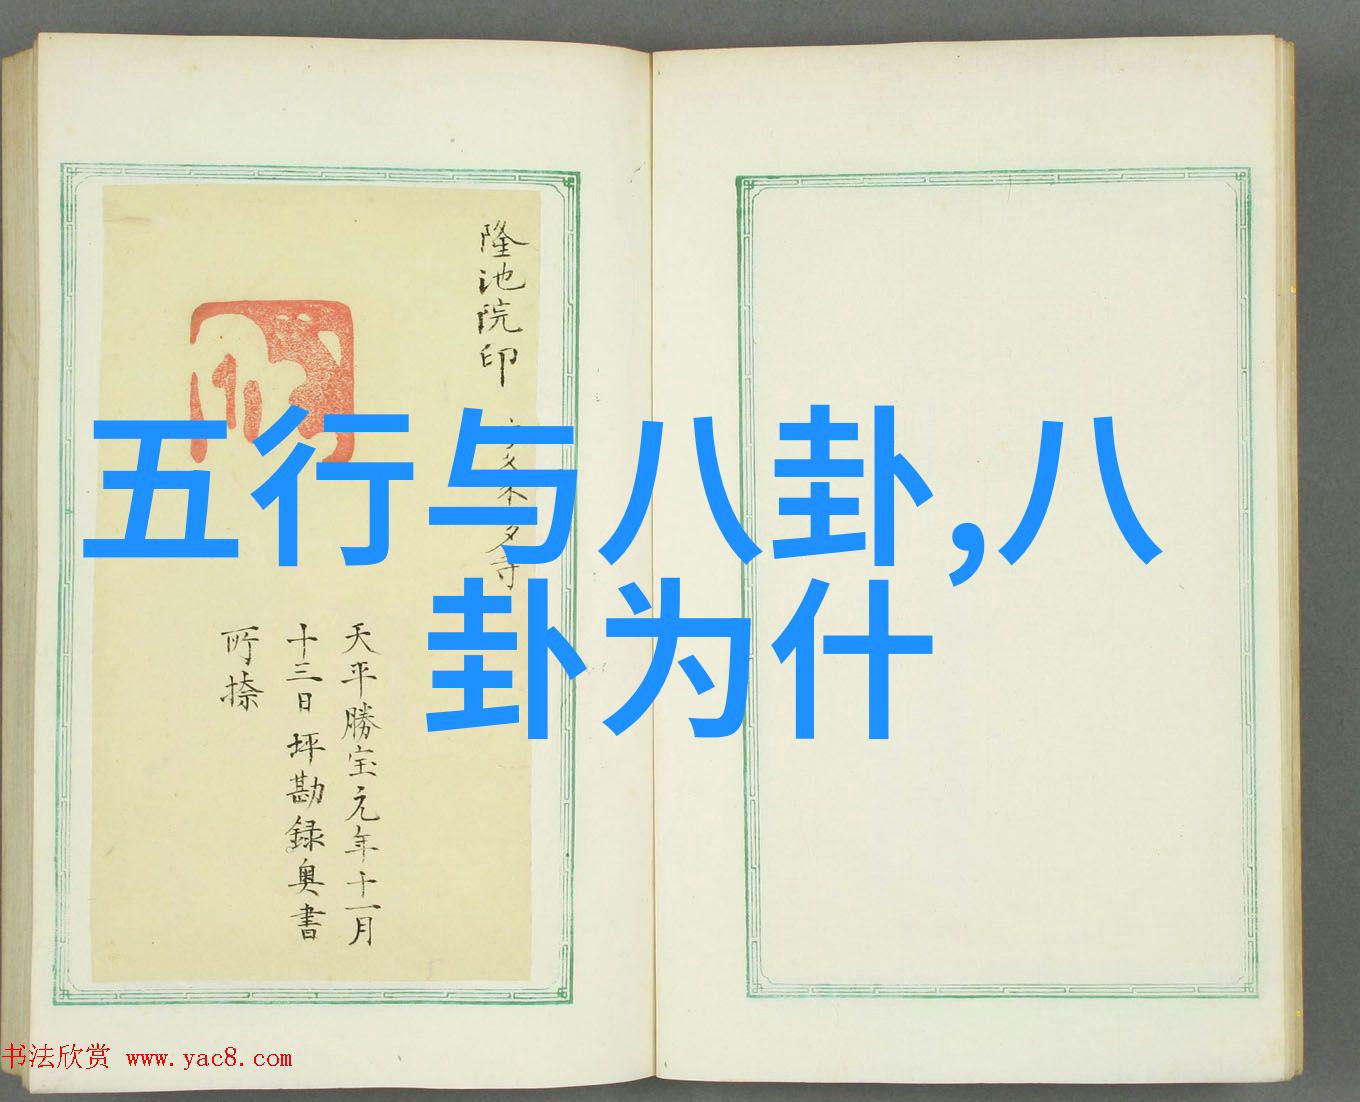 五行与八卦,八
卦为什
隆池院印
天平勝宝元年十一月
十三日 坪勘録奥書
所捺
书法欣赏 www.yac8.com